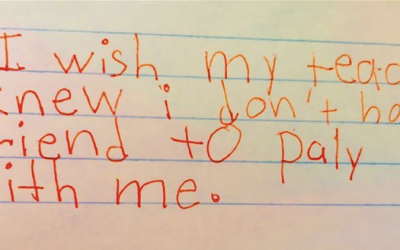 I wish my teac
knew i don't ha
riend to paly
ith me.